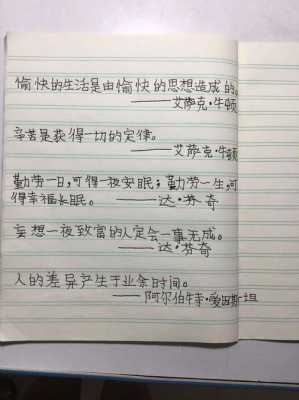 愉快的生活是由愉快的思想造成的。
——艾萨克·牛顿
辛苦是获得一切的定律。
——艾萨克·牛顿
勤劳一日,可得一夜安眠;勤劳一生,可
得幸福长眠。——达·芬奇
妄想一夜致富的人定会一事无成。
——达·芬奇
人的差异产生于业余时间。
——阿尔伯特·爱因斯坦